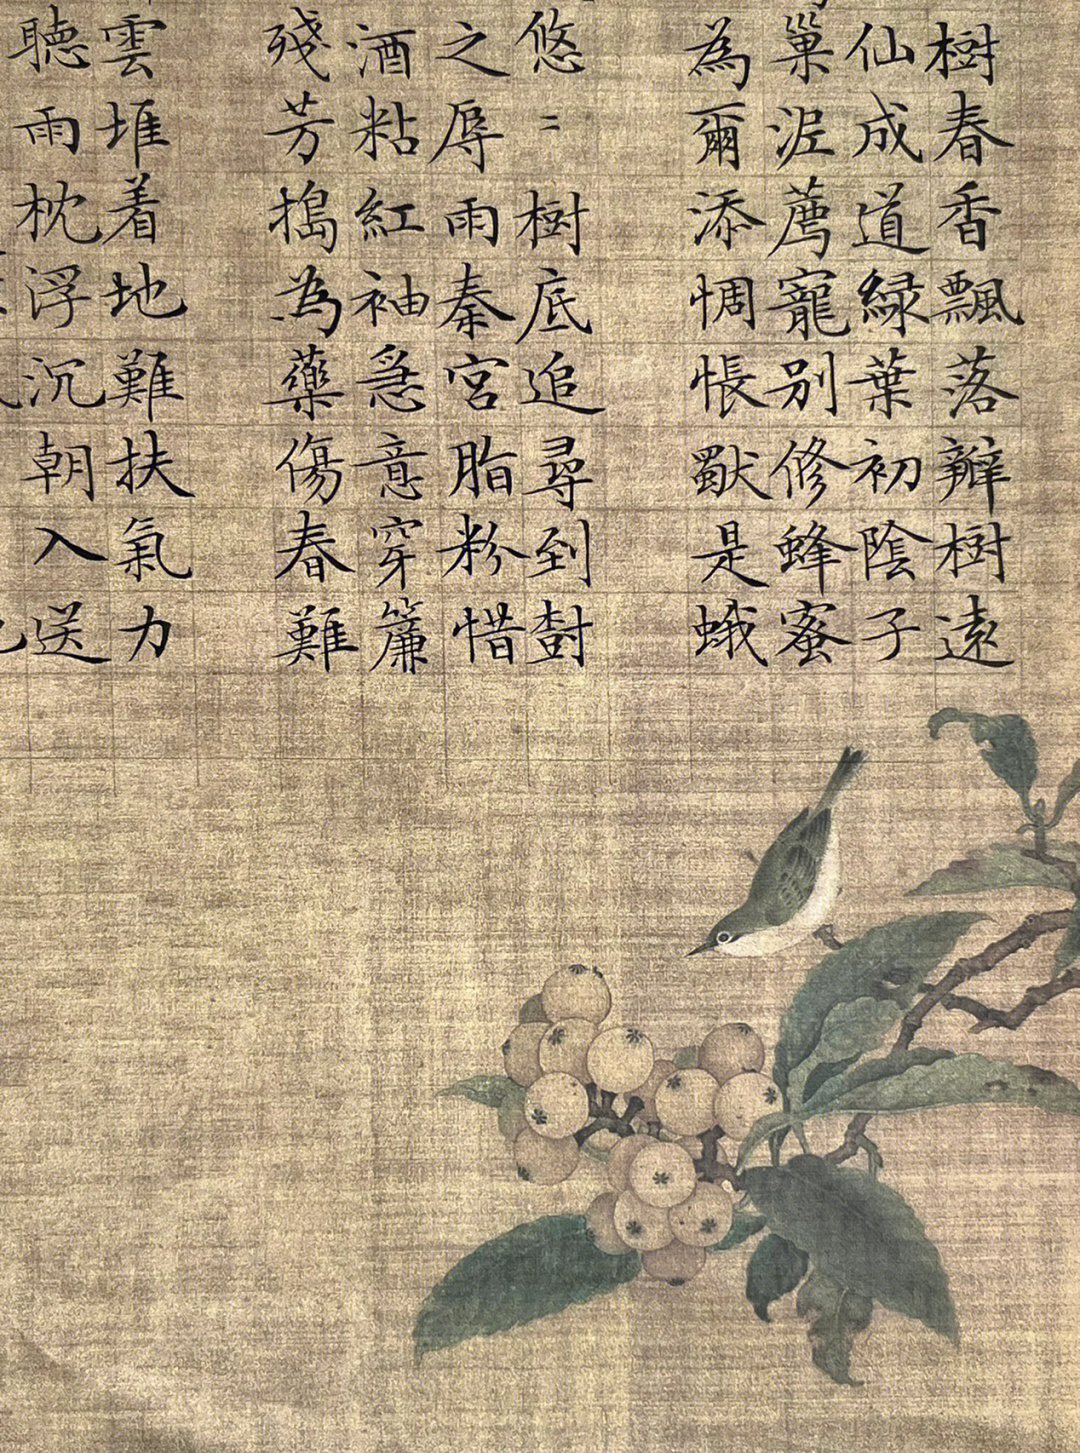 樹春香飄落瓣樹遠
仙成道緑葉初陰子
巢泥薦寵別修蜂蜜
為爾添惆悵獸是蛾
悠=樹底追尋到尌
之辱雨秦宮脂粉惜
酒粘紅袖急意穿簾
殘芳搗為藥傷春難
雲堆着地難扶氣力
聽雨枕浮沉朝入送